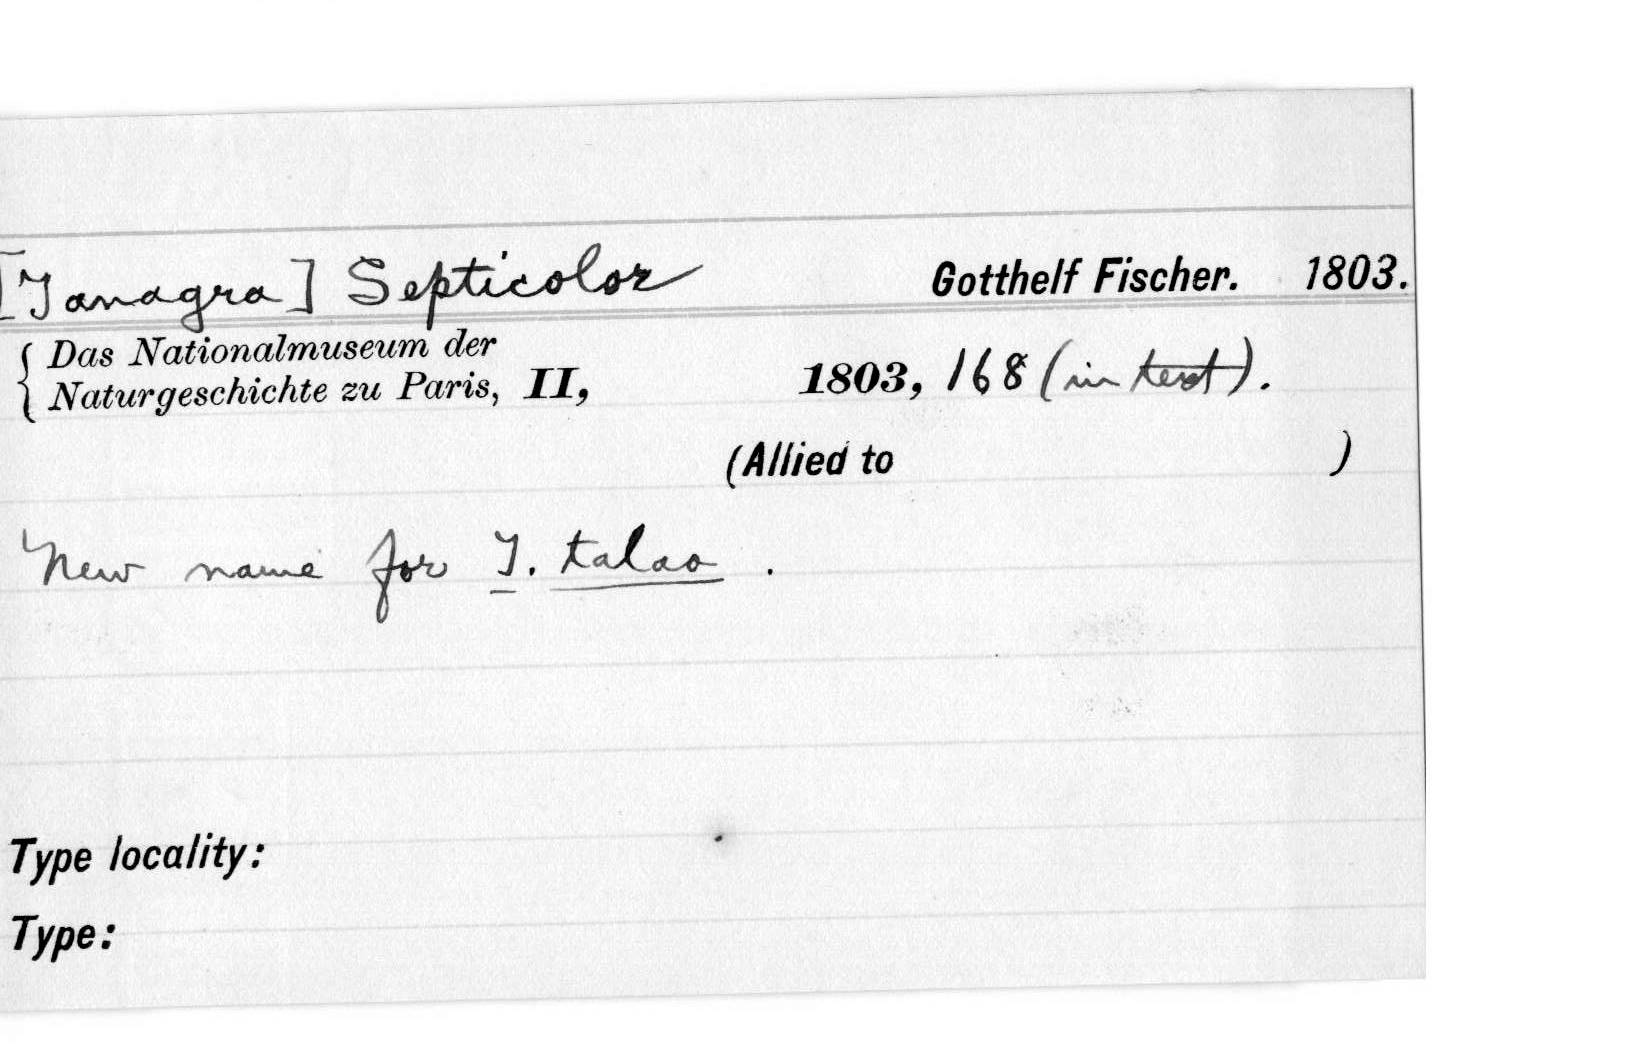 [Tanagra] Septicolor Gotthelf Fischer. 1803.
Das Nationalmuseum der
Naturgeschichte zu Paris, II, 1803, 168 (in text).
(Allied to )
New name for T. talao .
Type locality:
Type: